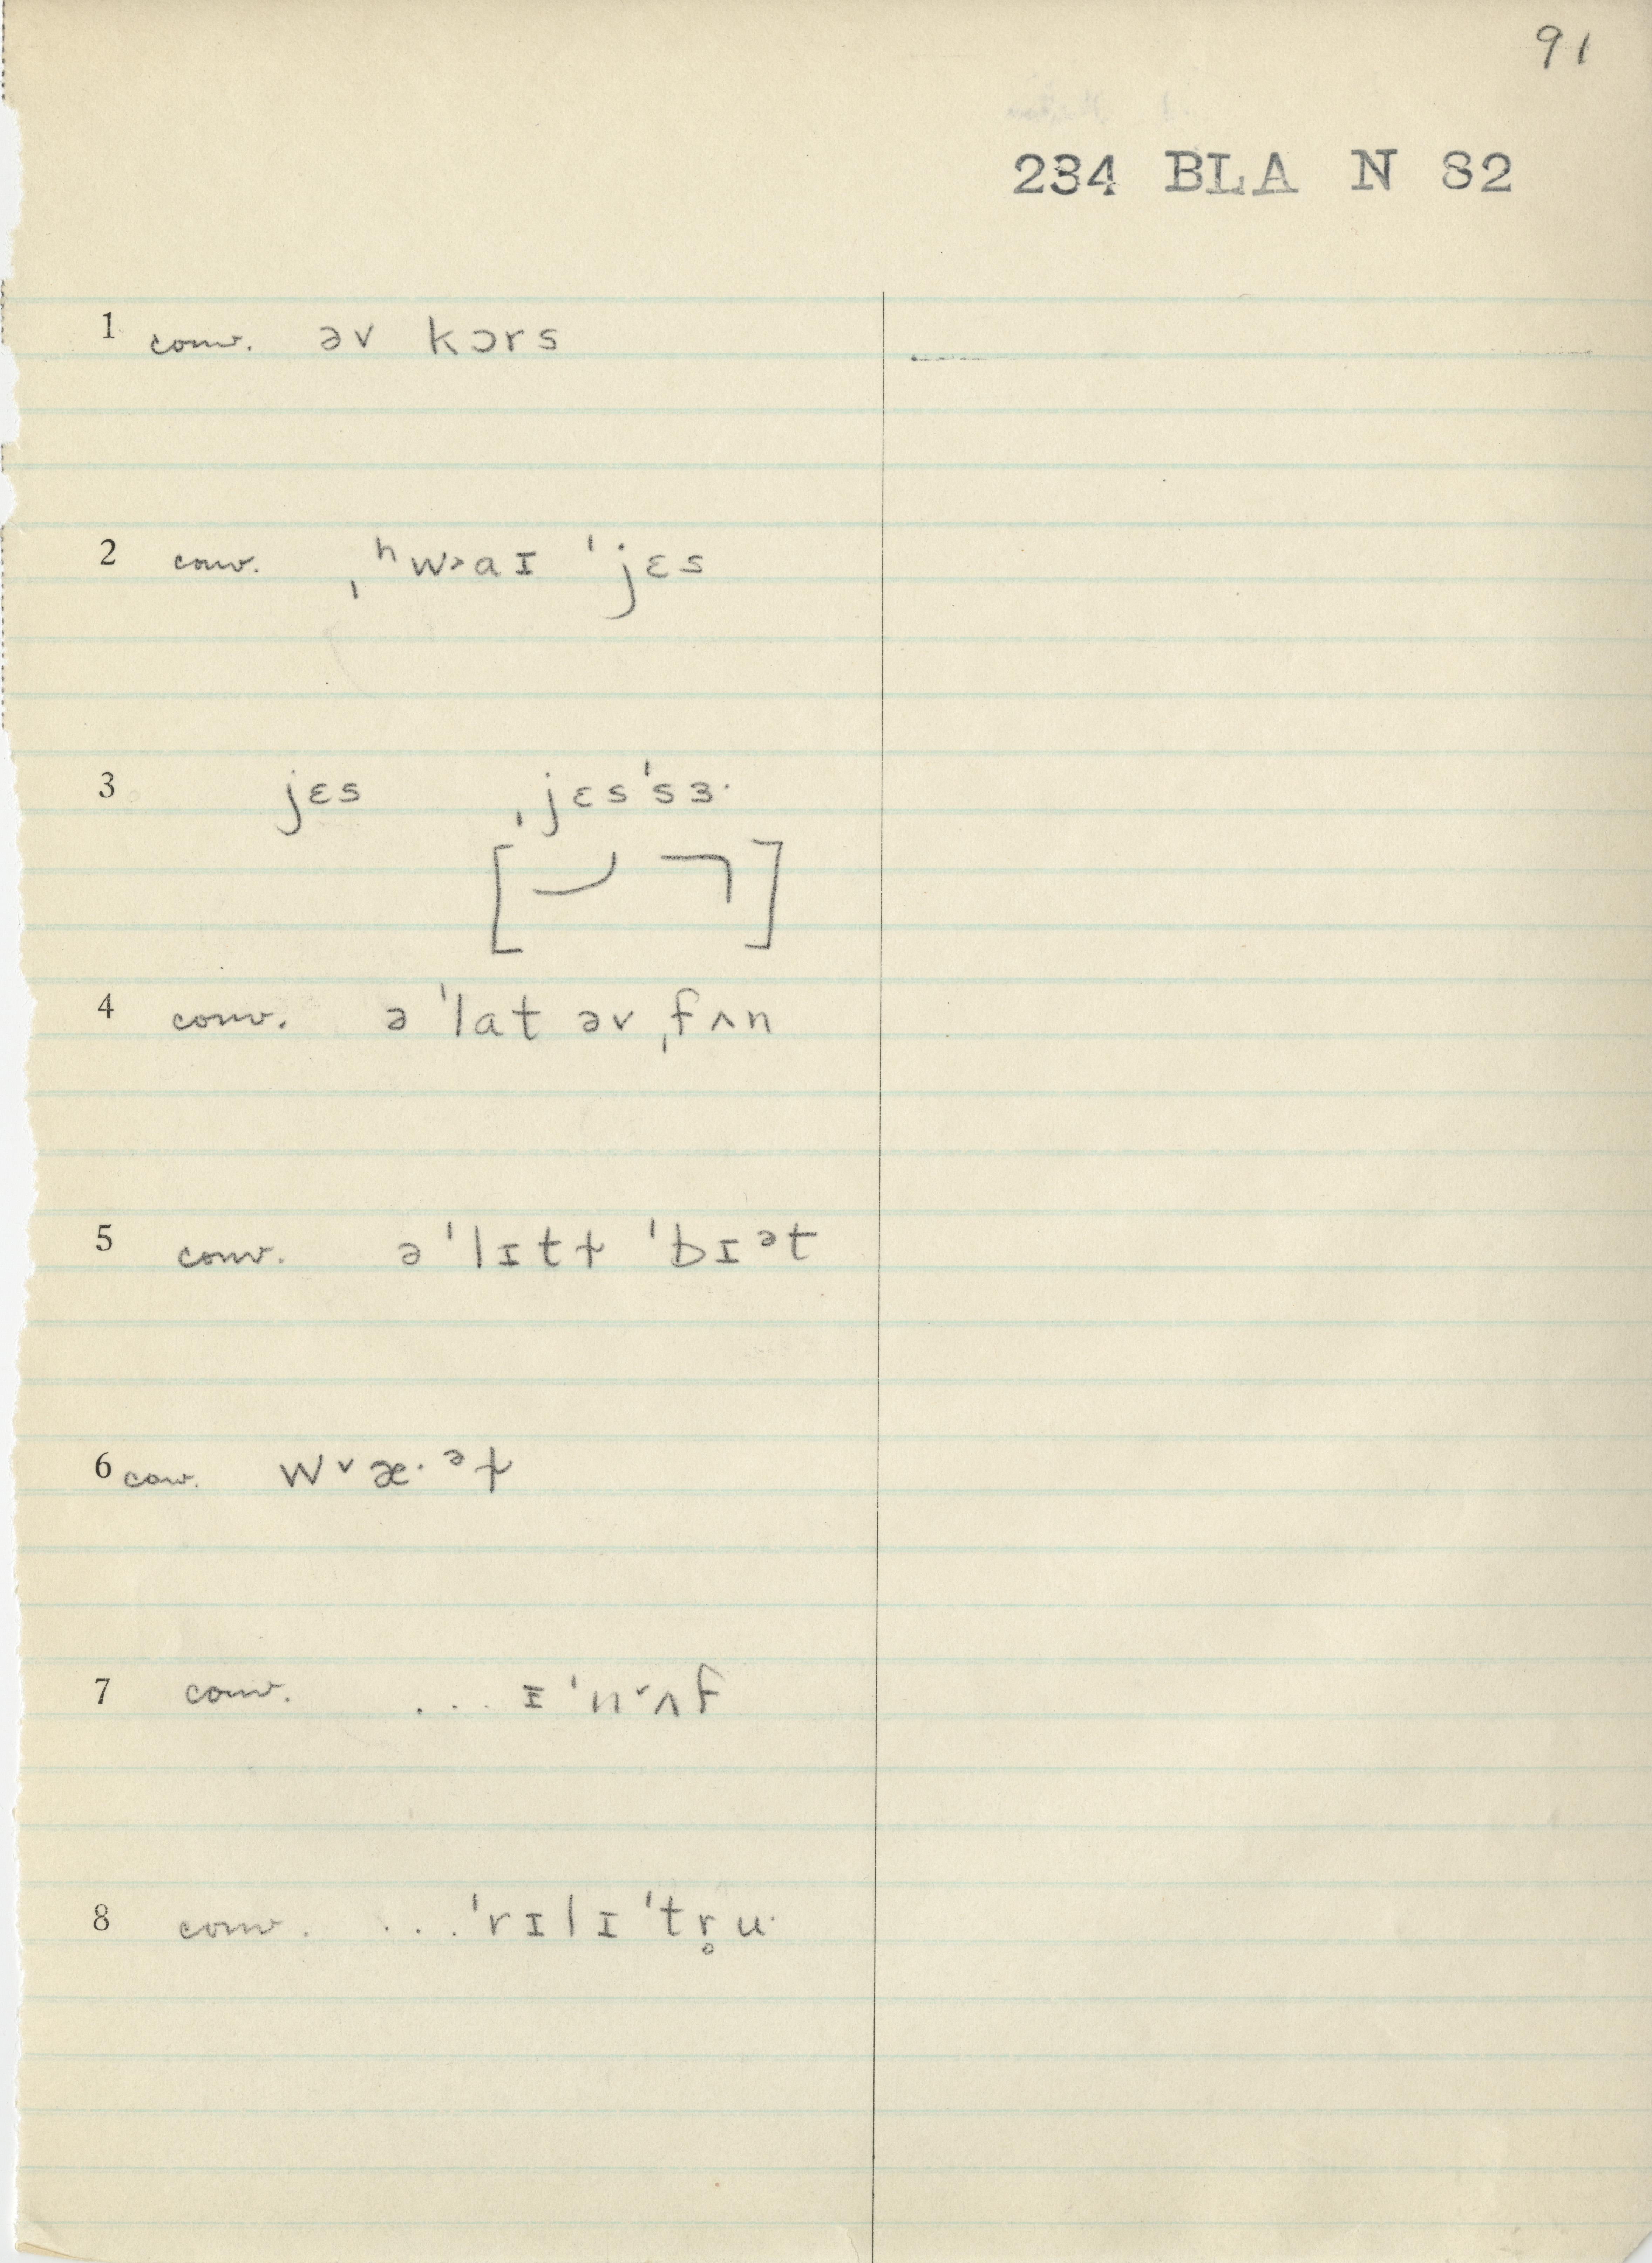 91
234 BLA N 82
1 conv. əv kɔrs
2 conv. ˌʰw˃aɪ ˈjɛs
3 jɛs ˌjɛsˈsɜ·
4 conv. ə ˈlat əv ˌfʌn
5 conv. ə ˈlɪtɫ ˈbɪᵊt
6 conv. w˅æ·ᵊɫ
7 conv. ... ɪˈn˅ʌf
8 conv. ...ˈrɪlɪ ˈtr̥u·